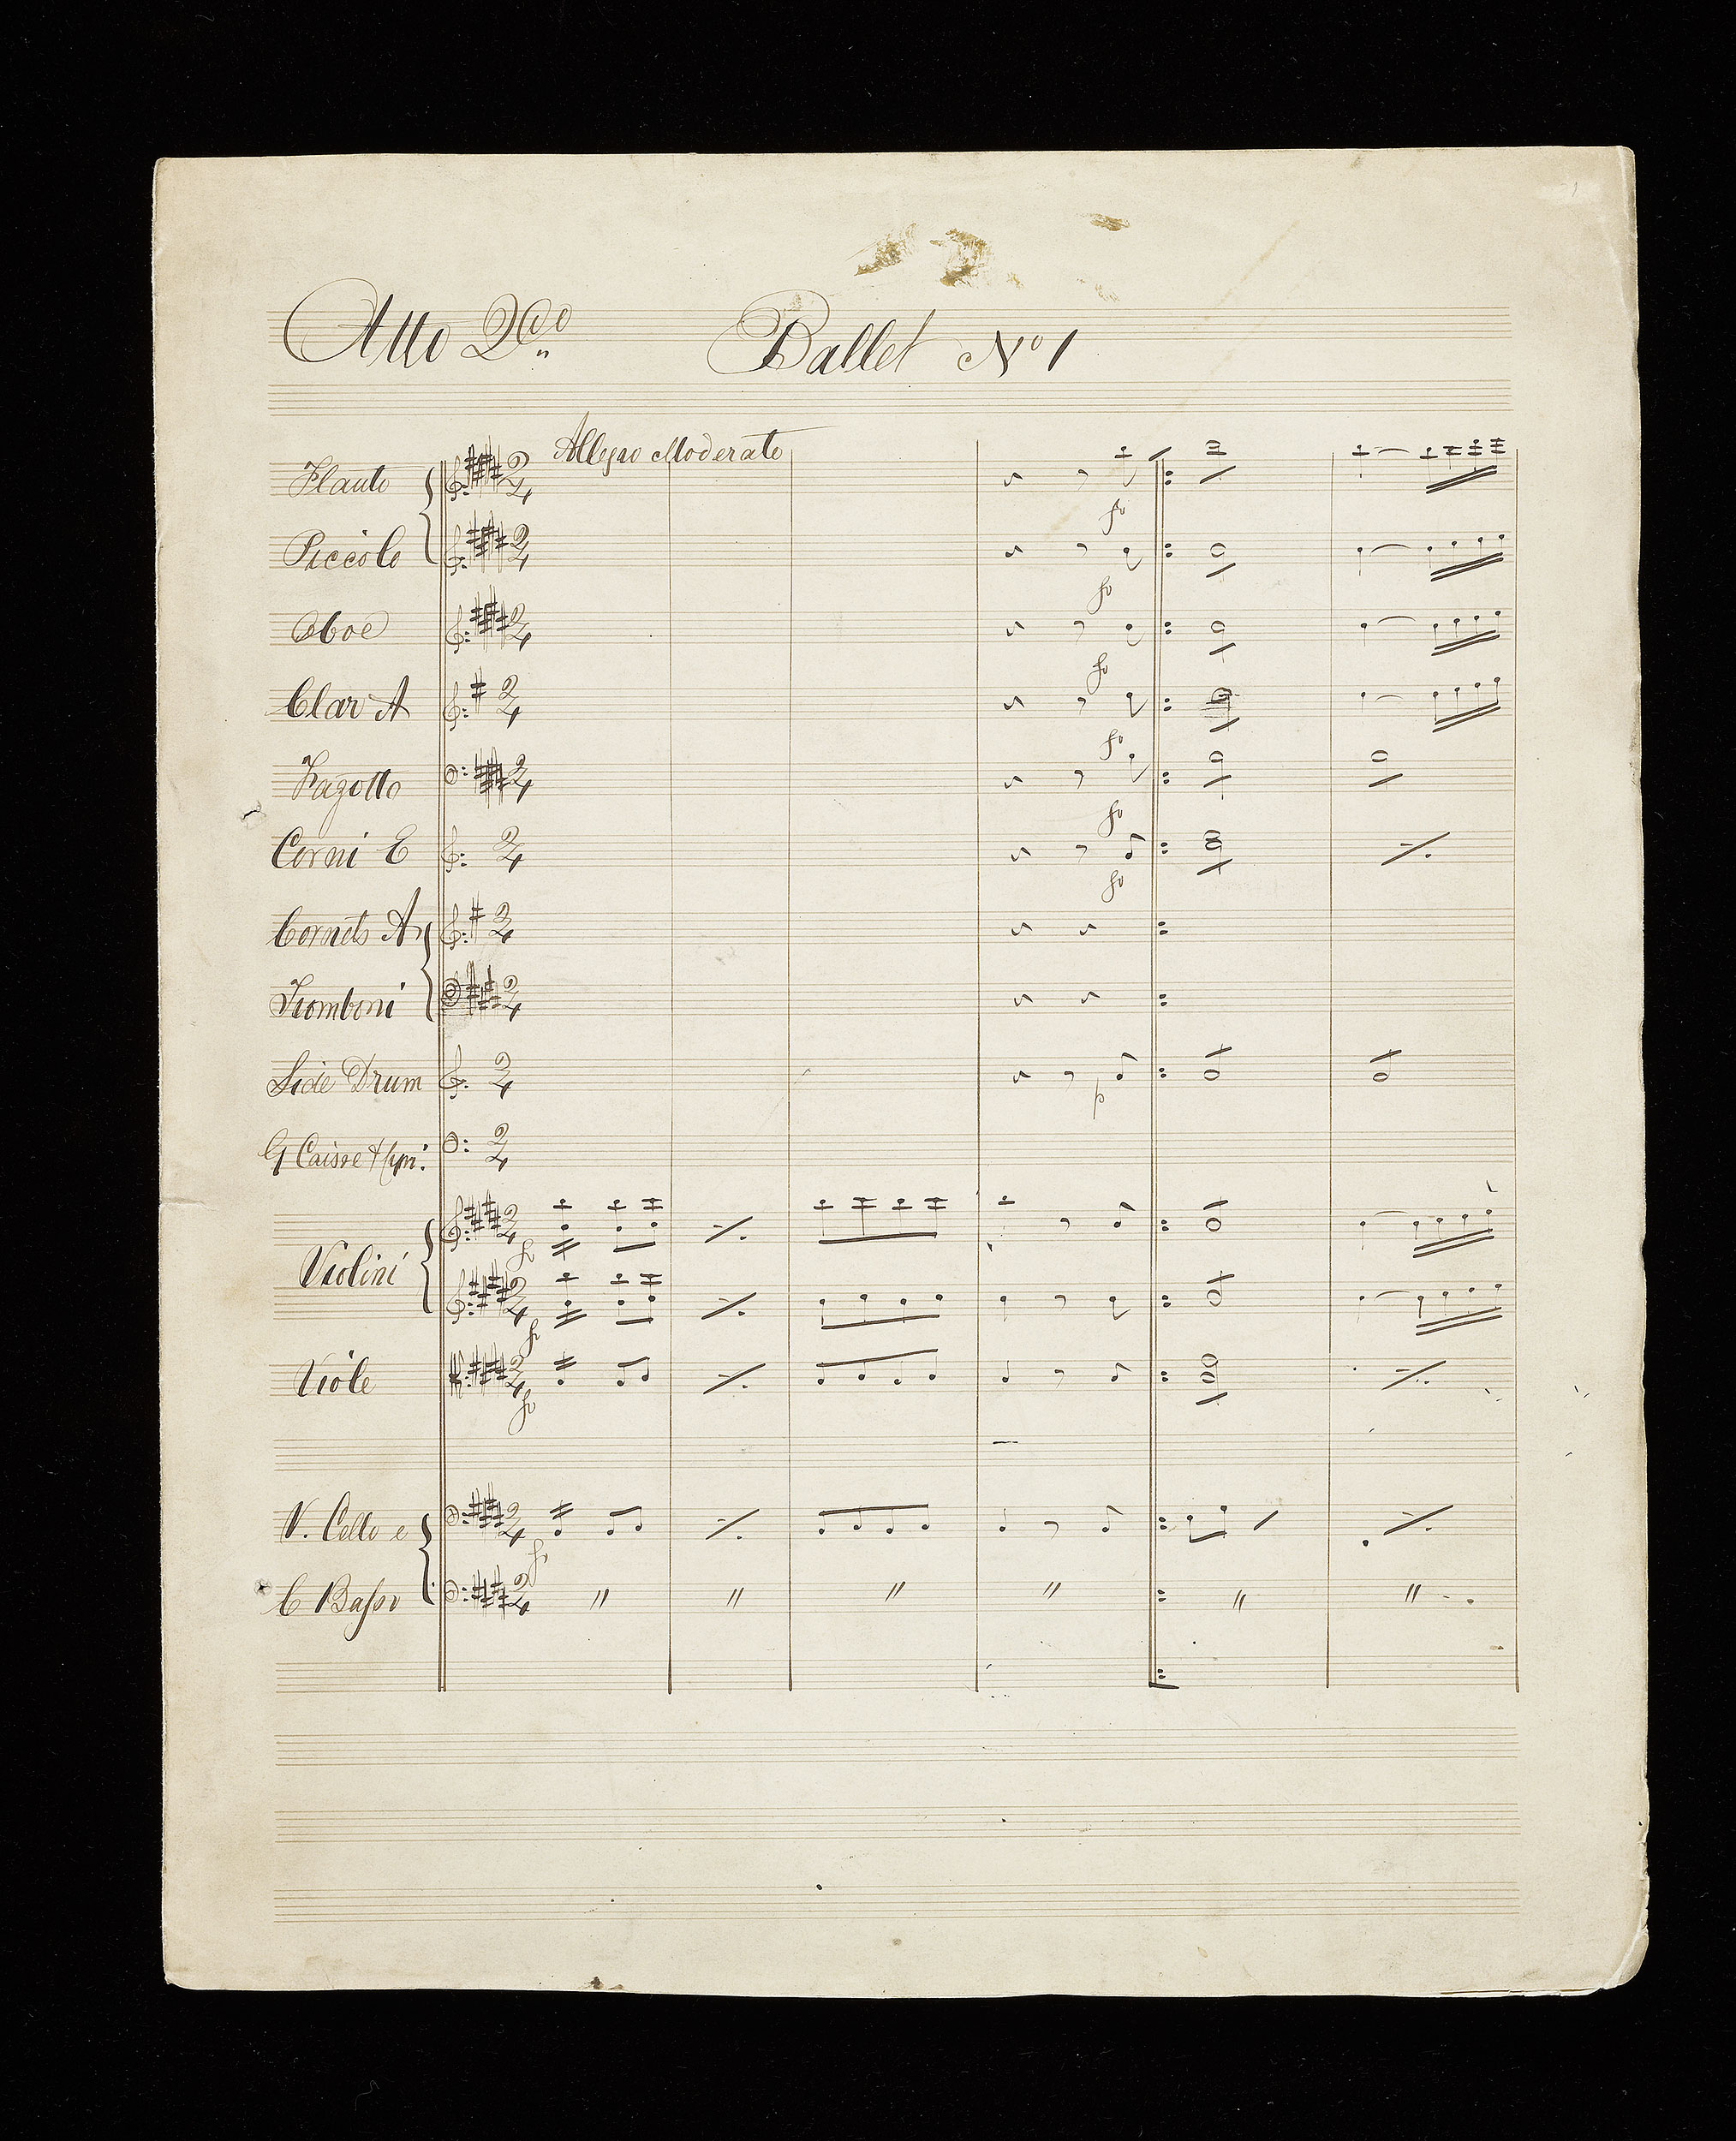 Atto 2do Ballet No 1
Allegro Moderato
Flauto
Piccolo
Oboe
Clar A
Fagotto
Corni E
Cornets A
Tromboni
Side Drum
G Caisse & Cym:
Violini
Viole
V. Cello e
C Basso